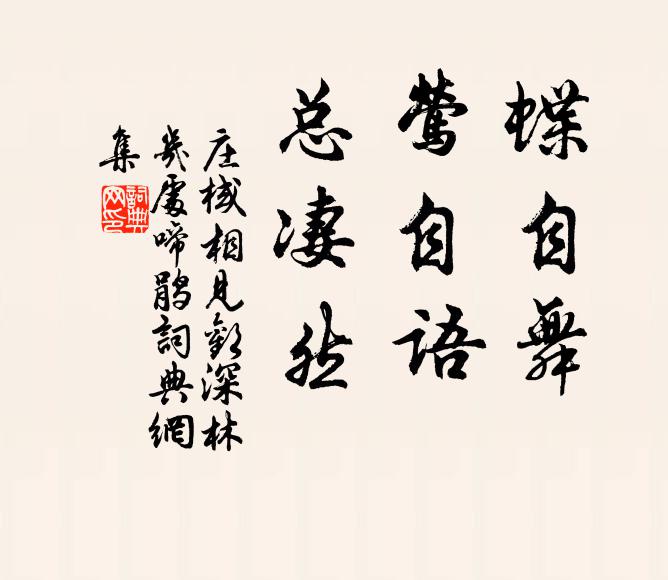 蝶自舞
莺自语
总凄然
庄棫相见欢深林
几處啼鹃詞典網
集
詞典
网印